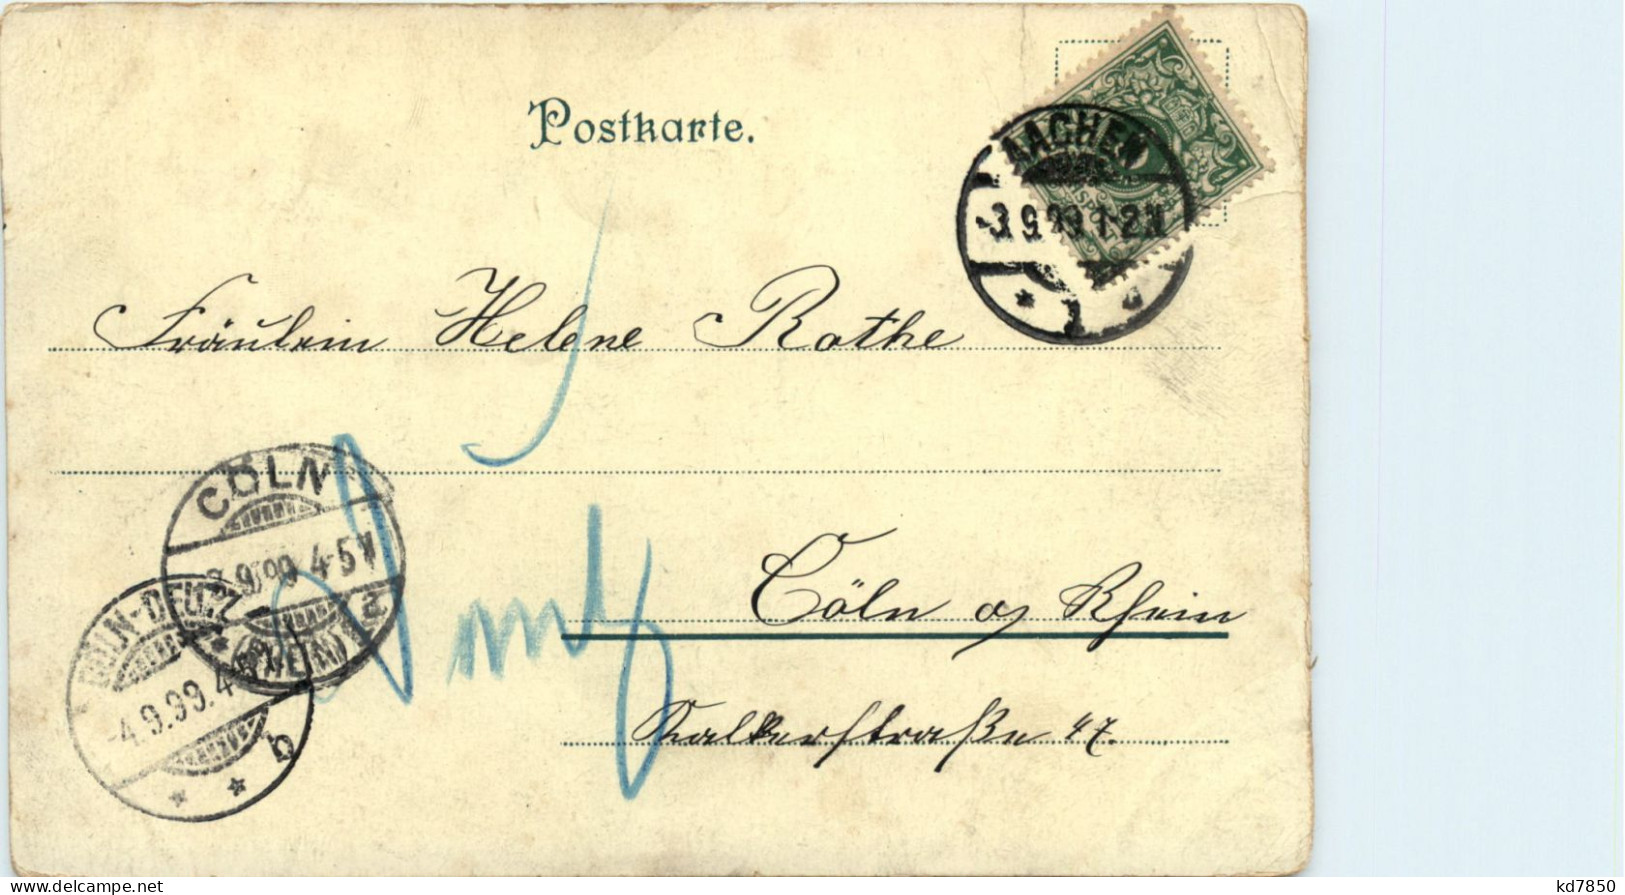 Postkarte.
AACHEN
-3.9.99 1-2N
* 1 d
Fräulein Helene Rothe
CÖLN
3.9.99 4-5N
(RHEIN) 1 a
CÖLN-DEUTZ
-4.9.99.
* * b
Cöln a/ Rhein
Kalkerstraße 47.
www.delcampe.net
kd7850